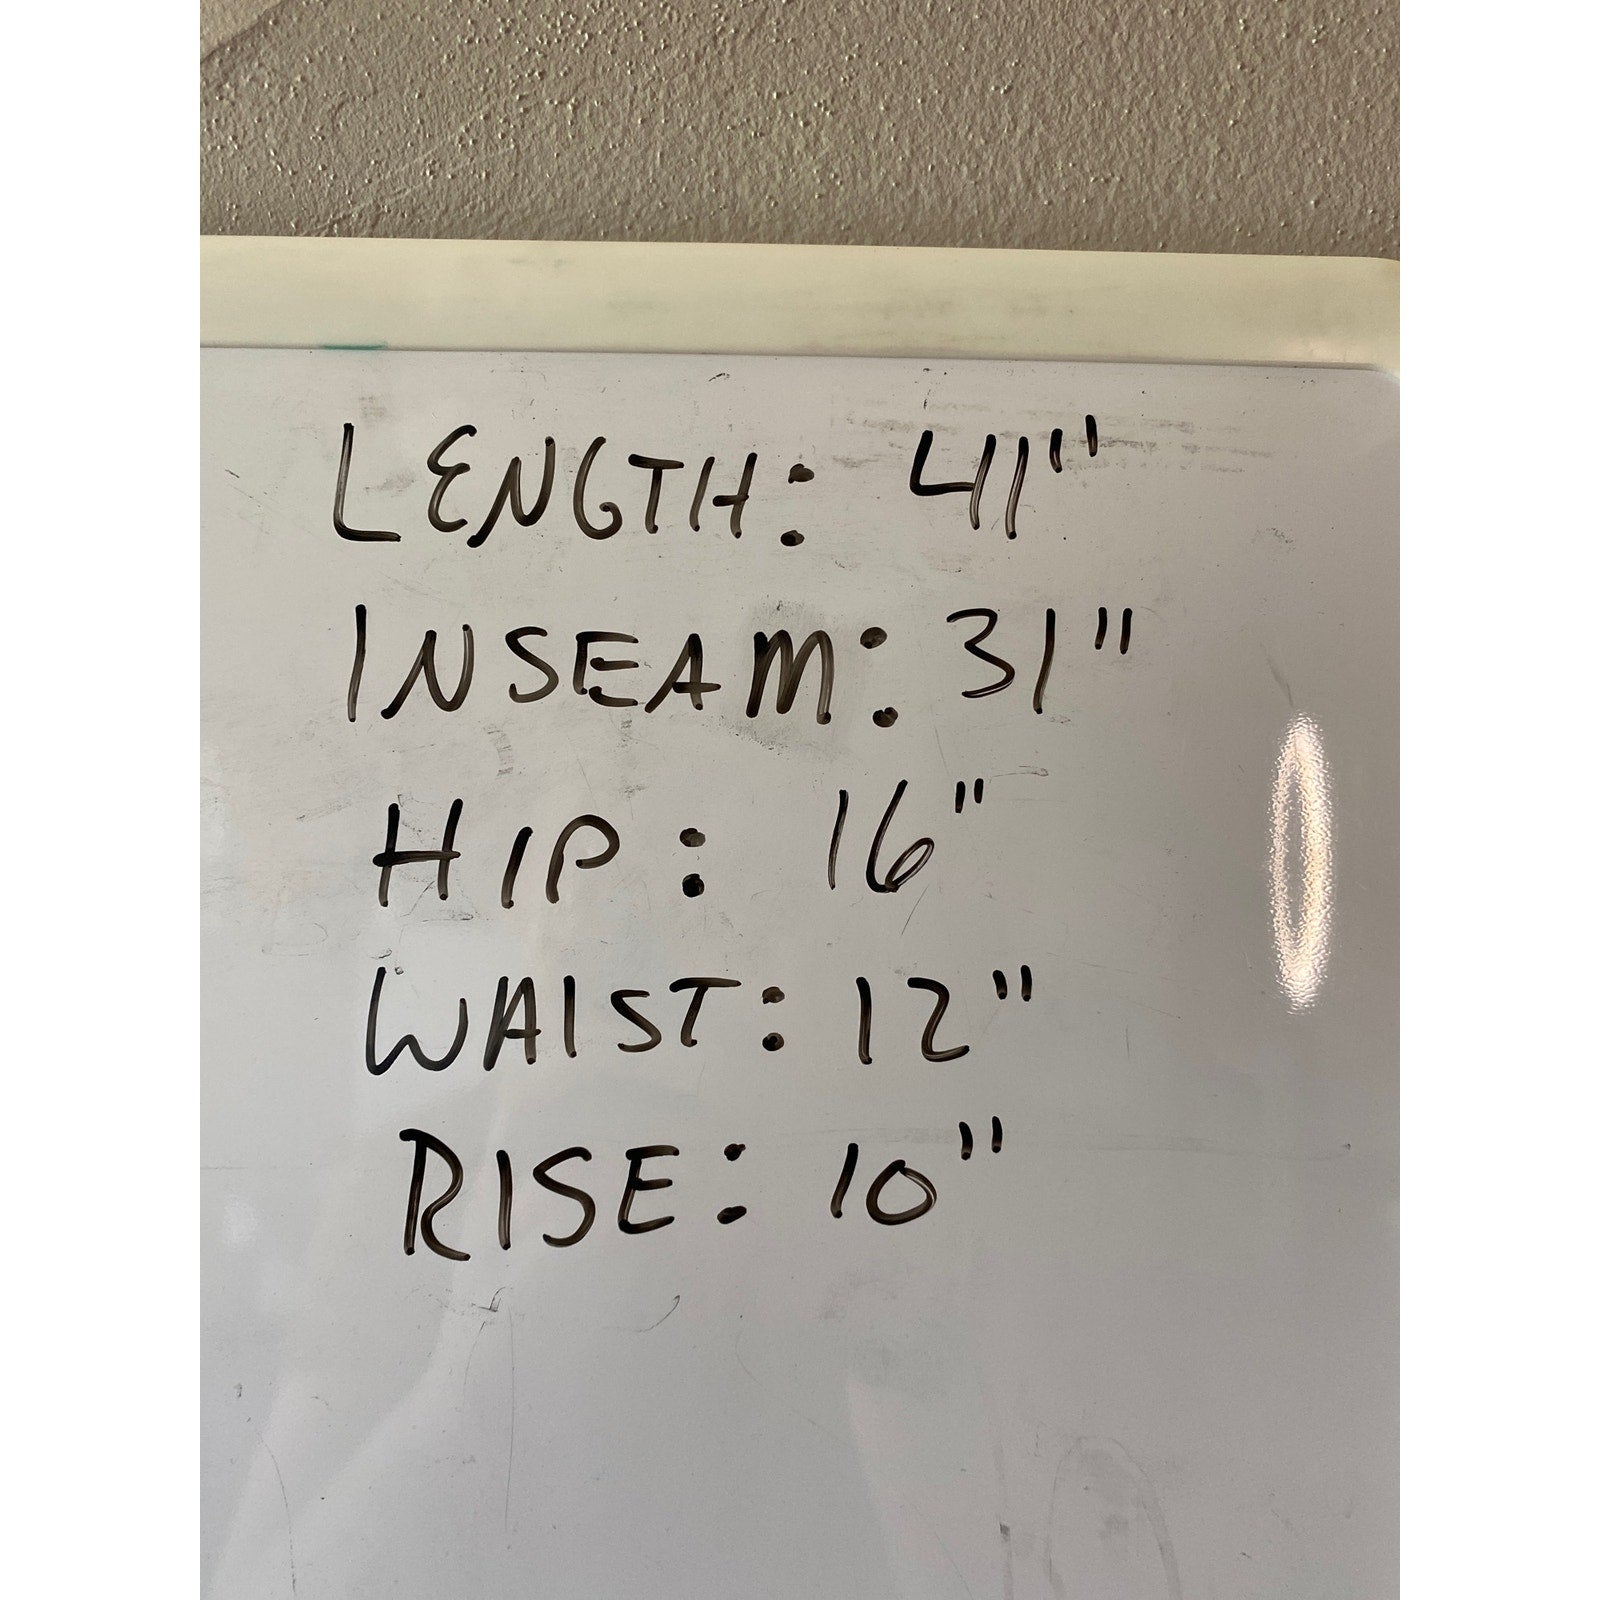 LENGTH: 41"
INSEAM: 31"
HIP: 16"
WAIST: 12"
RISE: 10"